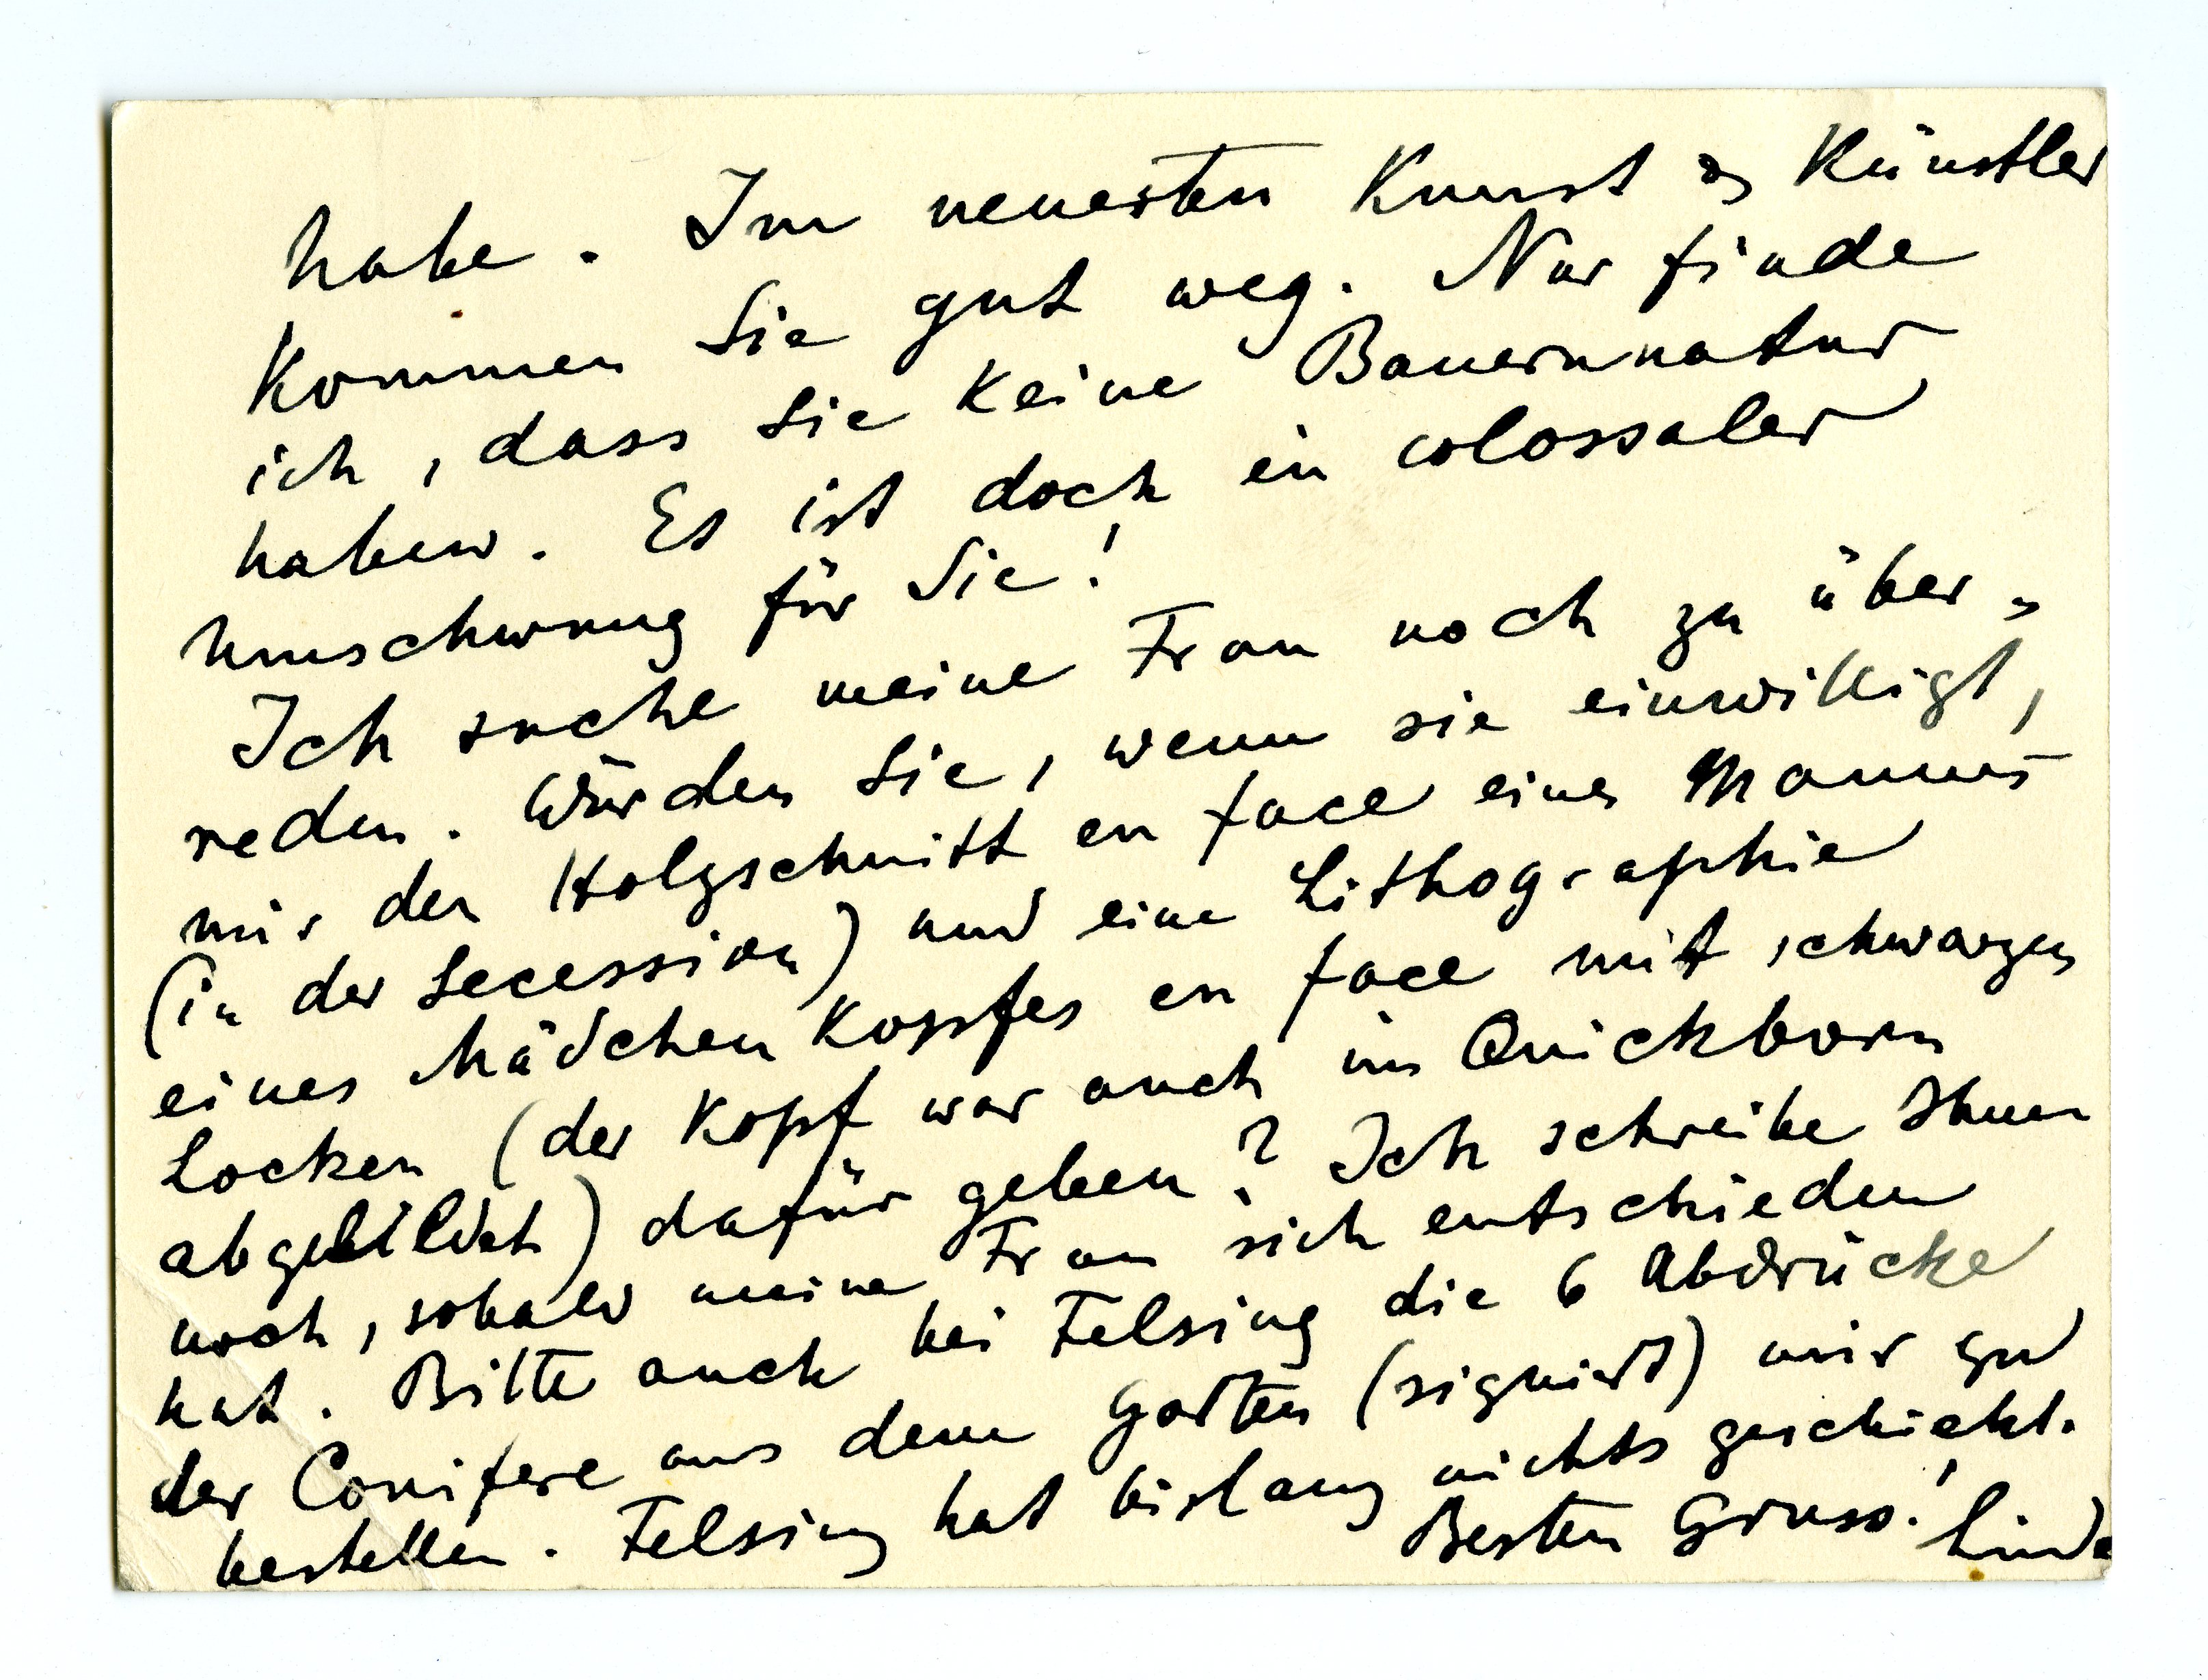 habe. Im neuesten Kunst & Künstler
kommen Sie gut weg. Nur finde
ich, dass Sie keine Bauernnatur
haben. Es ist doch ein colossaler
Umschwung für Sie!
Ich suche meine Frau noch zu über-
reden. Würden Sie, wenn sie einwilligt,
mir den Holzschnitt en face eines Mannes
(in der Secession) und eine Lithographie
eines Mädchenkopfes en face mit schwarzen
Locken (der Kopf war auch im Quickborn
abgebildet) dafür geben? Ich schreibe Ihnen
noch, sobald meine Frau sich entschieden
hat. Bitte auch bei Felsing die 6 Abdrücke
der Conifere aus dem Garten (signirt) mir
bestellen. Felsing hat bislang nichts geschickt.
Besten Gruss! Linde